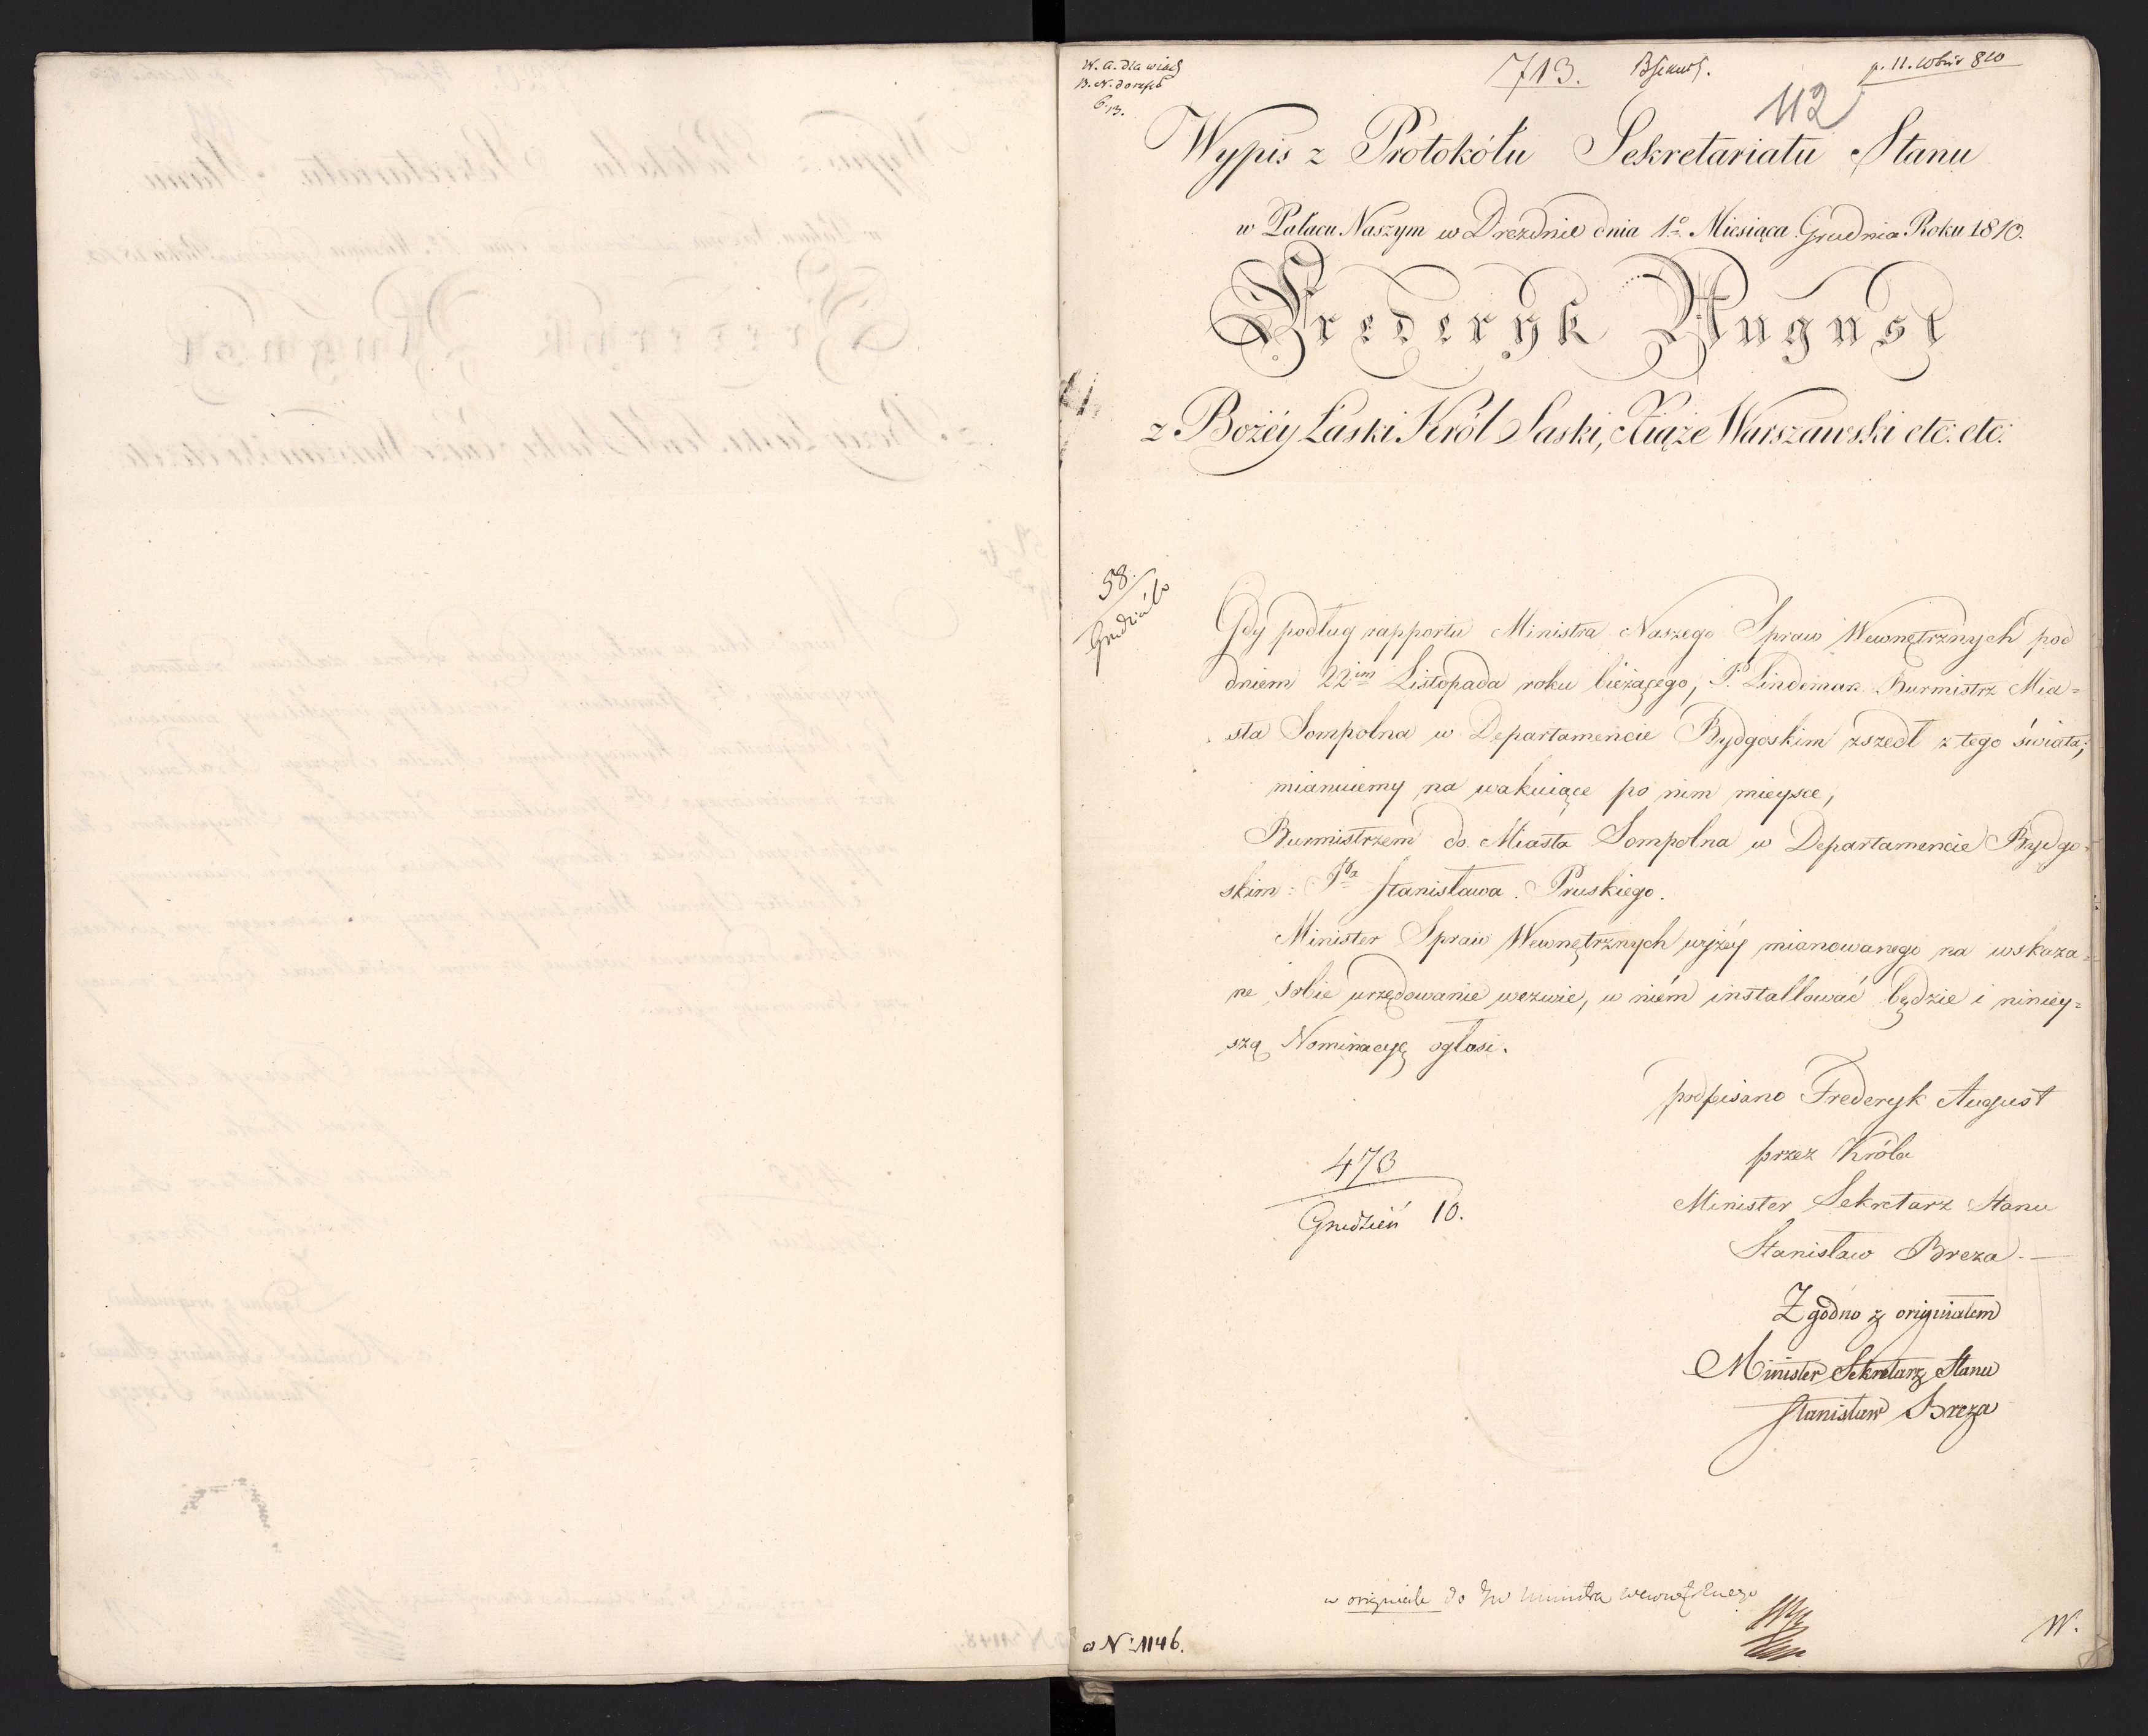 W. A. dla wiad
713.
p. 11. Xbris 810
112
Wypis z Protokółu Sekretariatu Stanu
w Pałacu Naszym w Dreznie dnia 1º Miesiąca Grudnia Roku 1810.
Frederyk August
z Bożéy Łaski Król Saski, Xiąże Warszawski etc. etc.
58.
Grudzień
Gdy podług rapportu Ministra Naszego Spraw Wewnętrznych pod
dniem 22im Listopada roku bieżącego, P. Lindeman Burmistrz Mia=
sta Sompolna w Departamencie Bydgoskim zszedł z tego świata;
mianuiemy na wakuiące po nim mieysce,
Burmistrzem do Miasta Sompolna w Departamencie Bydgo=
skim = Pa Stanisława Pruskiego.
Minister Spraw Wewnętrznych wyżéy mianowanego na wskaza=
ne sobie urzędowanie wezwie, w niém installować będzie i niniey=
szą Nominacyę ogłosi.
podpisano Frederyk August
przez Króla
Minister Sekretarz Stanu
Stanisław Breza.—
473
Grudzień 10.
Zgodno z originałem
Minister Sekretarz Stanu
Stanisław Breza
w originale do JW Ministra Wewnętrznego
N: 1146.
W.